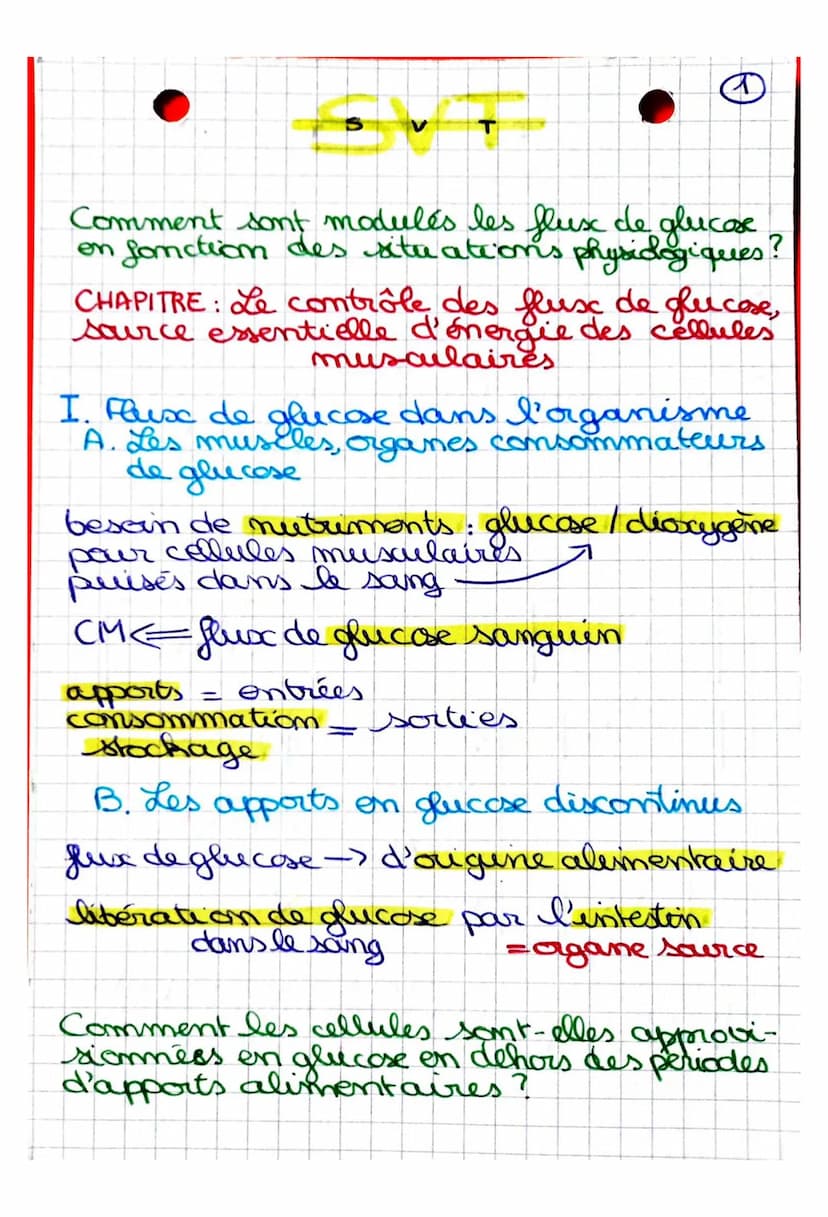 1
SVT
S V T
Comment sont modulés les flux de glucose
en fonction des situations physiologiques ?
CHAPITRE : Le contrôle des flux de glucose,
source essentielle d'énergie des cellules
musculaires
I. Flux de glucose dans l'organisme
A. Les muscles, organes consommateurs
de glucose
besoin de nutriments : glucose / dioxygène
pour cellules musculaires
puisés dans le sang
CM ⇐ flux de glucose sanguin
apports = entrées
consommation = sorties
stockage
B. Les apports en glucose discontinus
flux de glucose → d'origine alimentaire
libération de glucose par l'intestin
dans le sang = organe source
Comment les cellules sont-elles approvi-
sionnées en glucose en dehors des périodes
d'apports alimentaires ?